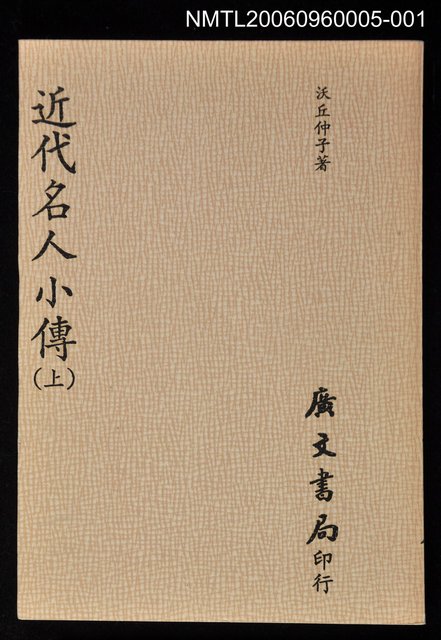 NMTL20060960005-001
沃丘仲子著
近代名人小傳(上)
廣文書局印行